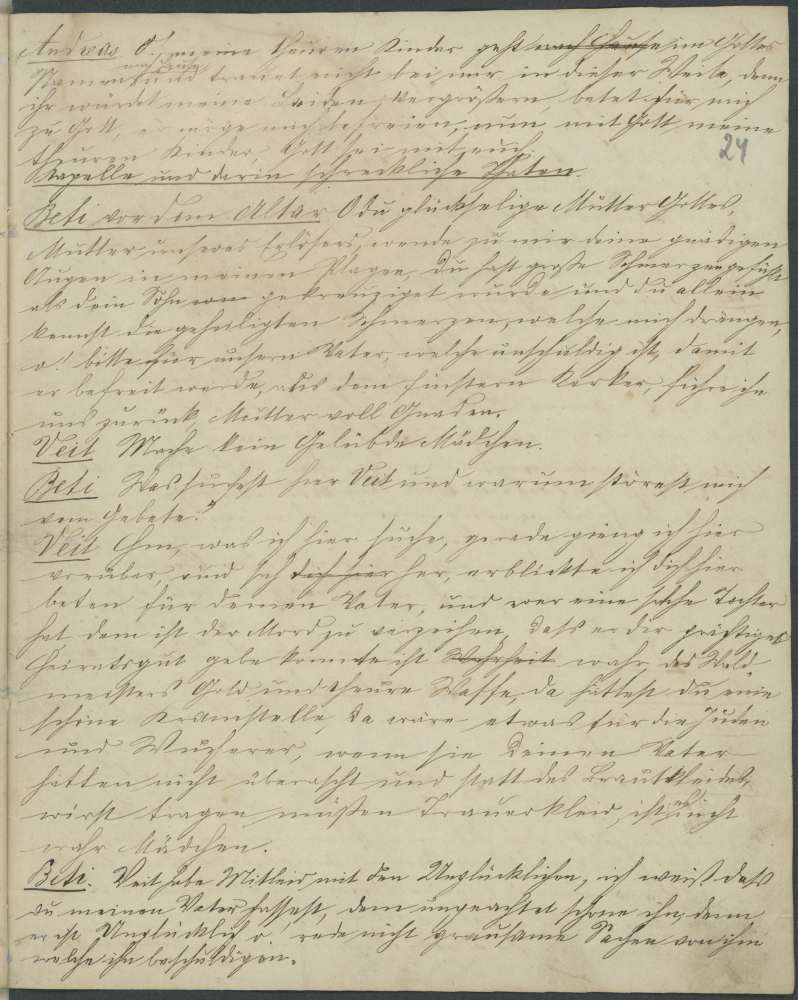 Andreas O! meine theuren Kinder geht nach Hause im Gottes
Namen nach Hause und trauert nicht bei mir in dieser Weile, denn
ihr würdet meine Leiden vergrößern, betet für mich
zu Gott, er möge mich befreien, nun mit Gott meine
theuren Kinder, Gott sei mit euch.
24
Kapelle und darin schreckliche Thaten.
Beti vor dem Altar O du glückselige Mutter Gottes,
Mutter unseres Erlösers, wende zu mir deine gnädigen
Augen in meinen Plagen. Du hast große Schmerzen gefühlt
als dein Sohn gekreuziget wurde und du allein
kennst die geheiligten Schmerzen, welche mich drängen,
o! bitte für unsern Vater, welche unschuldig ist, damit
er befreit werde, aus dem finstern Kerker, führe ihn
uns zurück, Mutter voll Gnaden.
Veit Mache kein Gelübde Mädchen.
Beti Was suchest hier Veit und warum störest mich
vom Gebete?
Veit Hm, was ich hier suche, gerade gieng ich hier
vorüber, und sah dich hier her, erblickte ich dich hier
beten für deinen Vater, und wer eine solche Tochter
hat dem ist der Mord zu verzeihen, daß er dir prächtiges
Heiratsgut gebe konnte ist Wahrheit wahr, des Wald
meisters Gold und theure Waffe, da hättest du eine
schöne Kramstelle, da wäre etwas für die Juden
und Wucherer, wenn sie deinen Vater
hätten nicht überrascht und statt des Brautkleides,
wirst tragen müßen Trauerkleid, ist es nicht
wahr Mädchen.
Beti. Veit habe Mitleid mit den Unglücklichen, ich weiß daß
du meinen Vater hassest, dem ungeachtet schone ihn, denn
er ist Unglücklich, o rede nicht grausame Sachen von ihm
welche ihn beschuldigen.